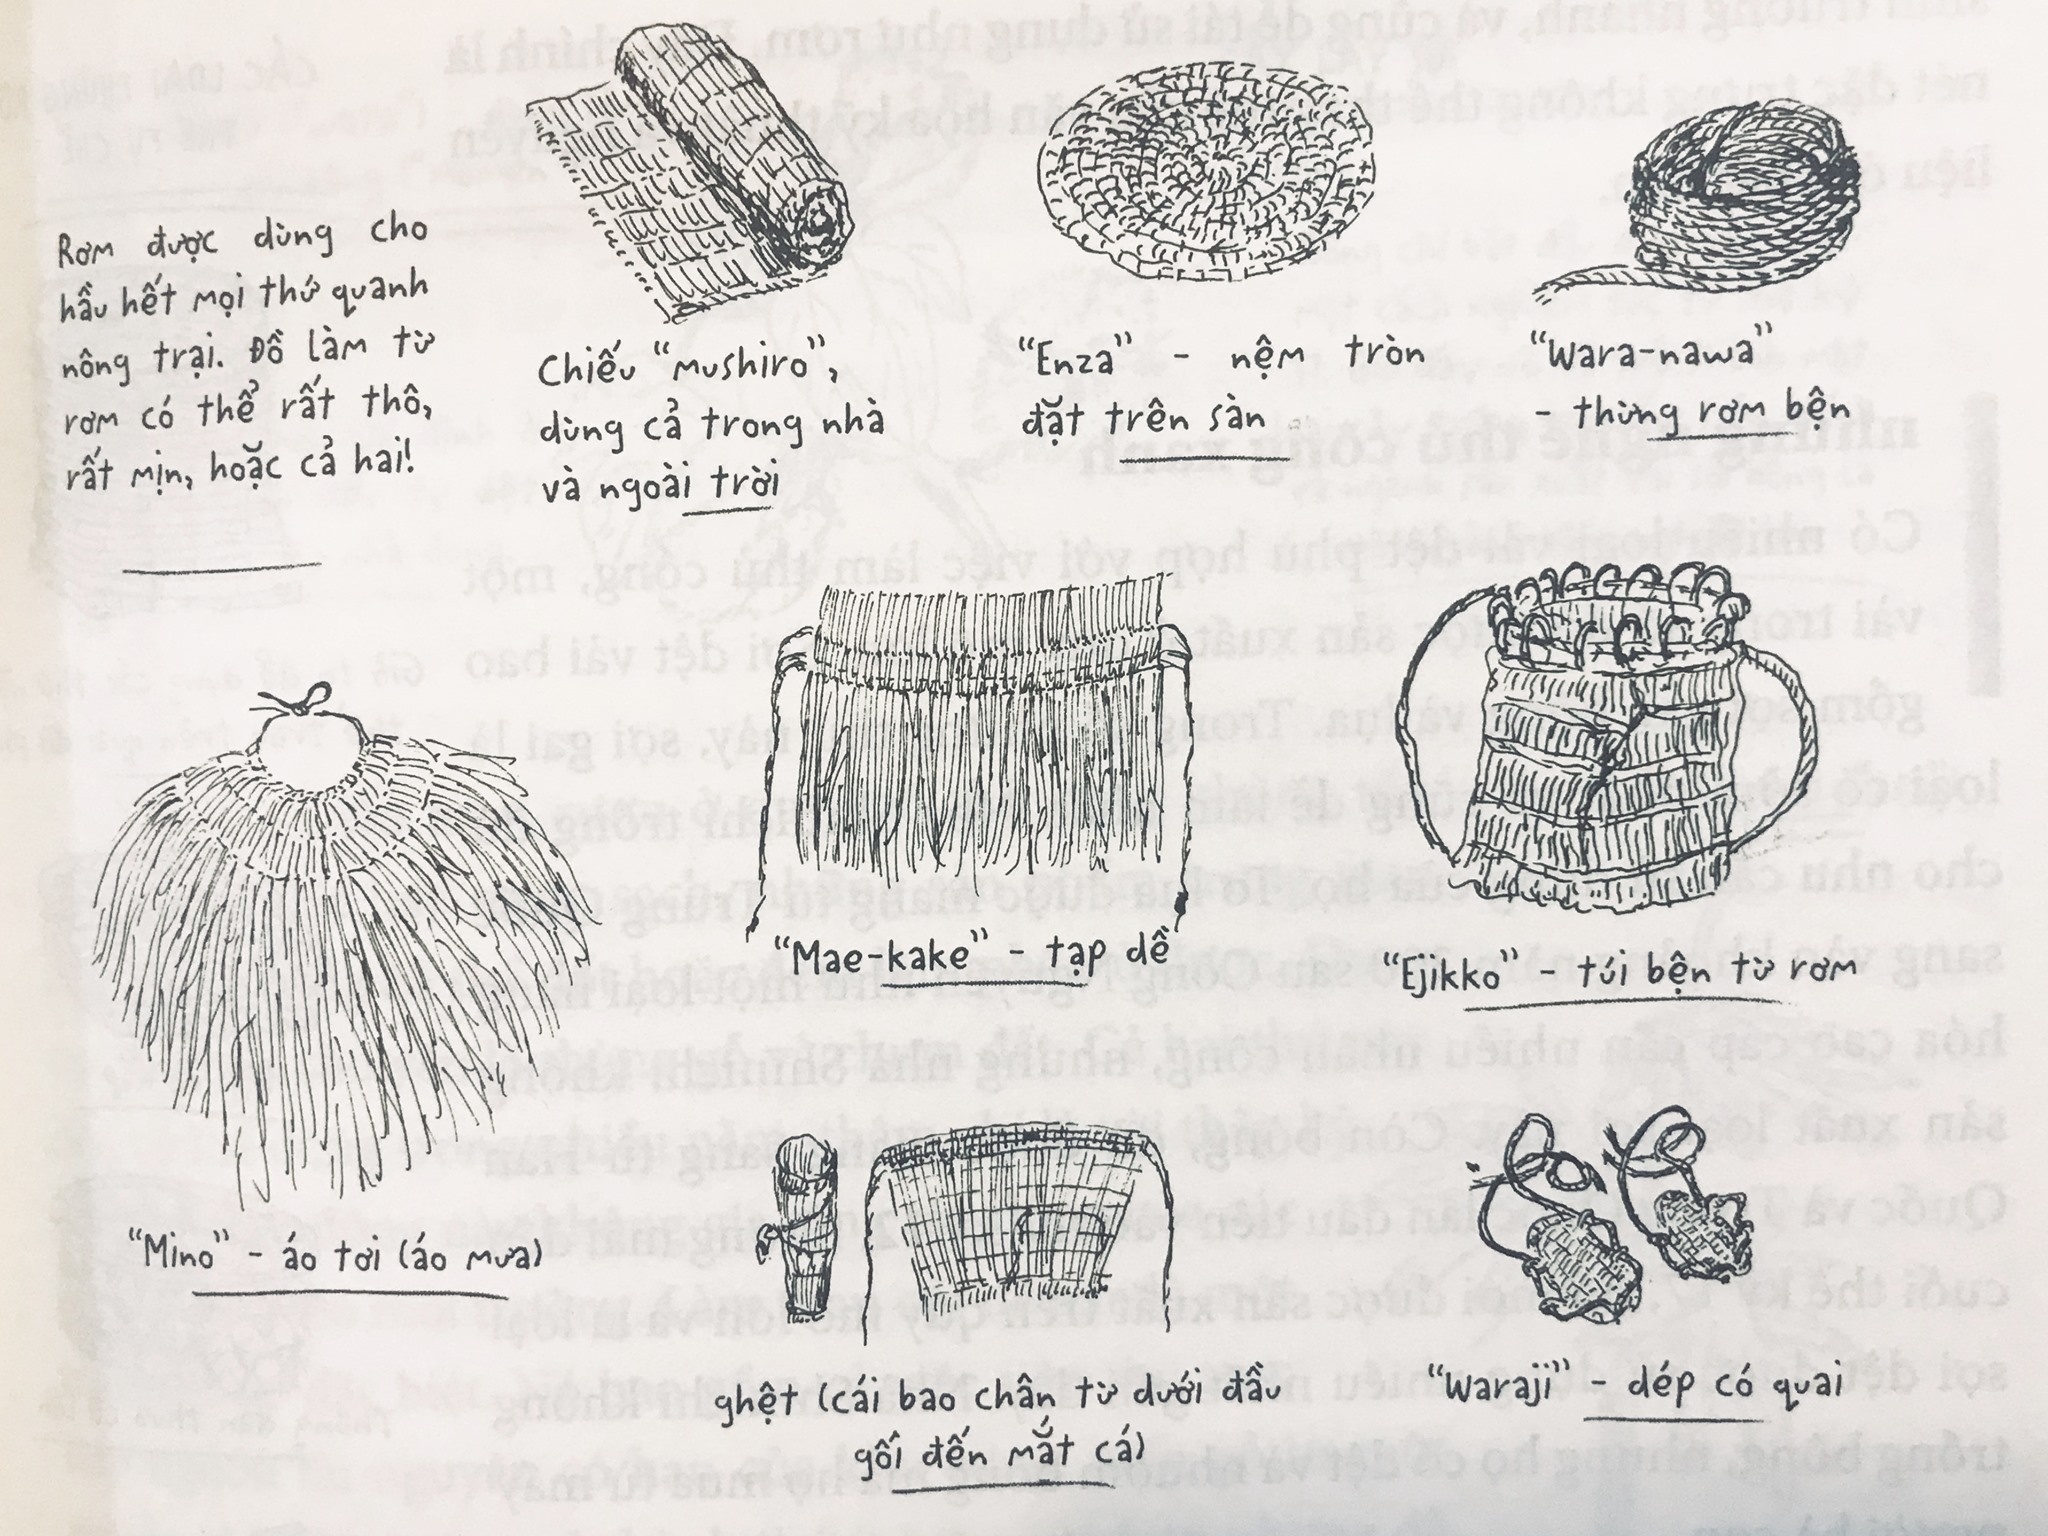 Rơm được dùng cho
hầu hết mọi thứ quanh
nông trại. Đồ làm từ
rơm có thể rất thô,
rất mịn, hoặc cả hai!
Chiếu “mushiro”,
dùng cả trong nhà
và ngoài trời
“Enza” - nệm tròn
đặt trên sàn
“Wara-nawa”
- thừng rơm bện
“Mino” - áo tơi (áo mưa)
“Mae-kake” - tạp dề
“Ejikko” - túi bện từ rơm
ghệt (cái bao chân từ dưới đầu
gối đến mắt cá)
“Waraji” - dép có quai